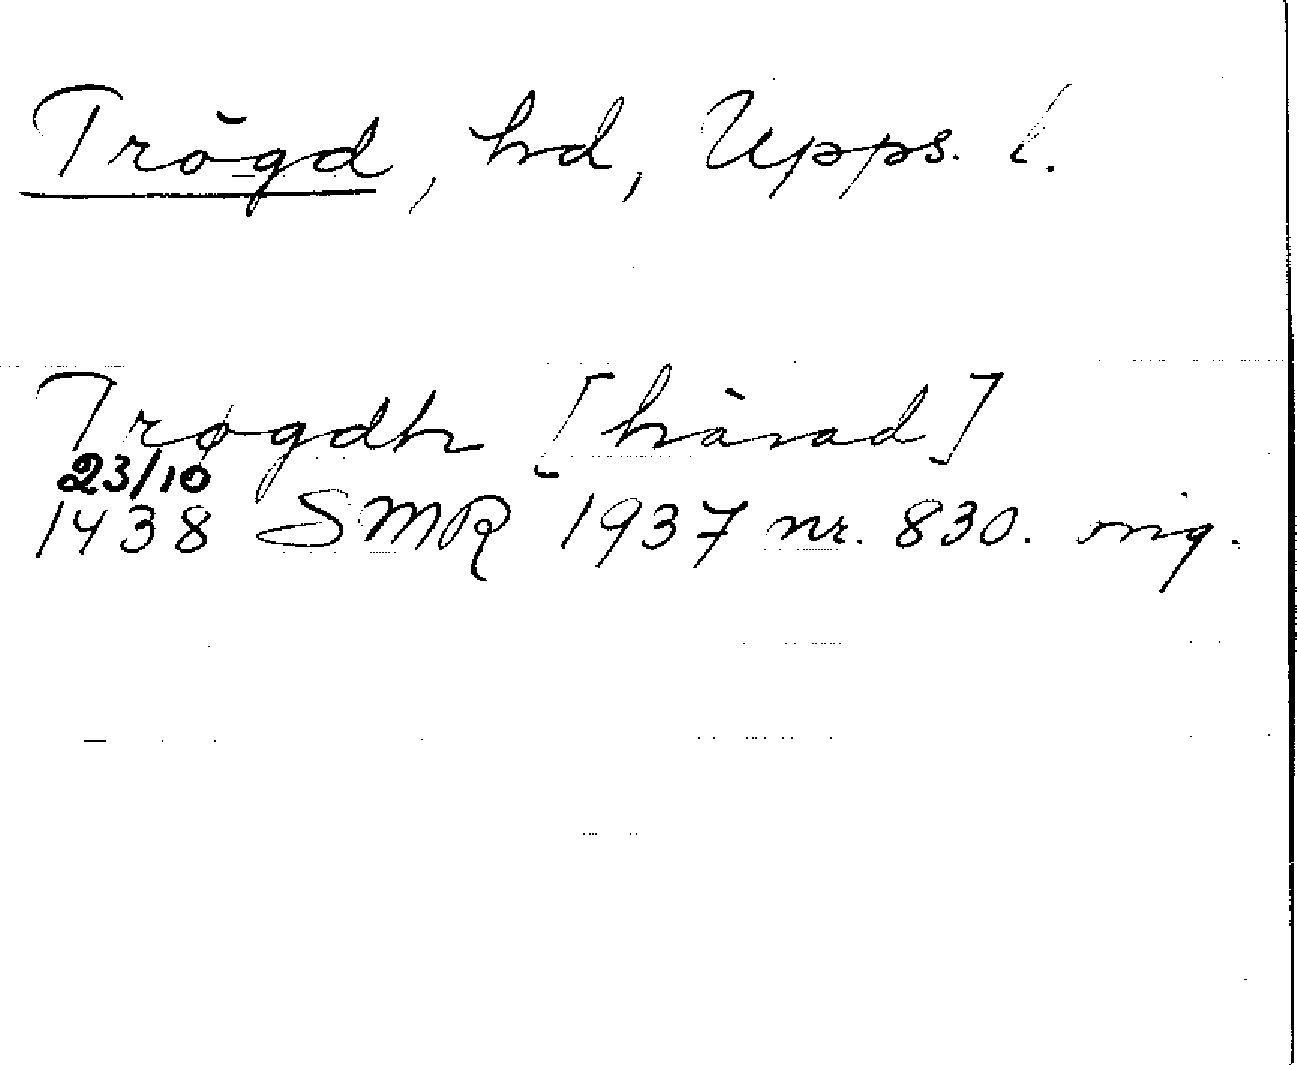 Trögd, hd, Upps. l.
Trøgdh [härad]
23/10
1438 SMR 1937 nr. 830. orig.